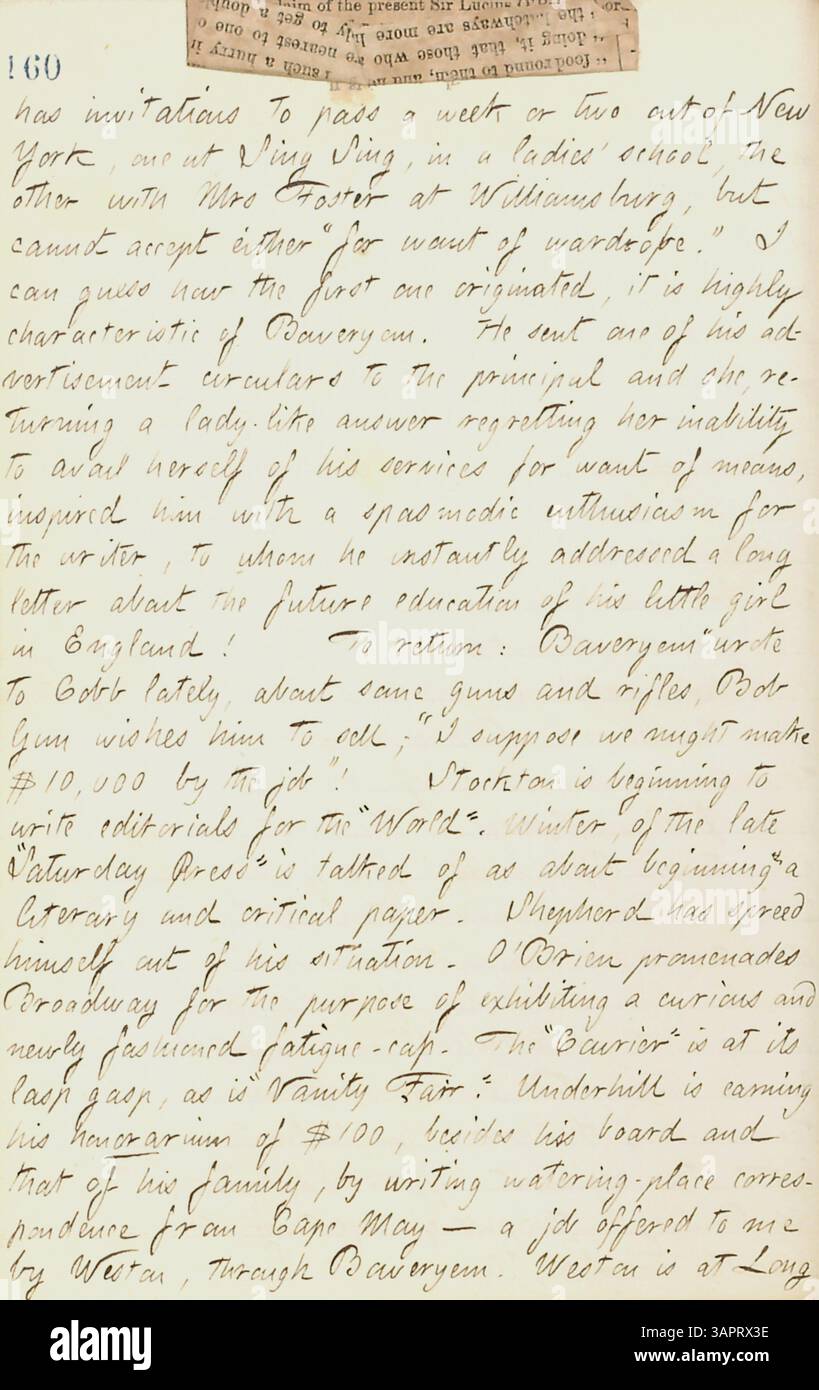 160
has invitations to pass a week or two out of New
York, one at Sing Sing, in a ladies' school, the
other with Mrs Foster at Williamsburg, but
cannot accept either "for want of wardrobe." I
can guess how the first one originated, it is highly
characteristic of Baveryem. He sent one of his ad-
vertisement circulars to the principal and she, re-
turning a lady-like answer regretting her inability
to avail herself of his services for want of means,
inspired him with a spasmodic enthusiasm for
the writer, to whom he instantly addressed a long
letter about the future education of his little girl
in England! To return: Baveryem wrote
to Cobb lately, about some guns and rifles, Bob
Gun wishes him to sell; "I suppose we might make
$10,000 by the job"! Stockton is beginning to
write editorials for the "World". Winter, of the late
"Saturday Press" is talked of as about beginning a
literary and critical paper. Shepherd has spreed
himself out of his situation. O'Brien promenades
Broadway for the purpose of exhibiting a curious and
newly fashioned fatigue-cap. The "Courier" is at its
lasp gasp, as is "Vanity Fair". Underhill is earning
his honorarium of $100, besides his board and
that of his family, by writing watering-place corres-
pondence from Cape May — a job offered to me
by Weston, through Baveryem. Weston is at Long
alamy
Image ID: 3APRX3E
www.alamy.com